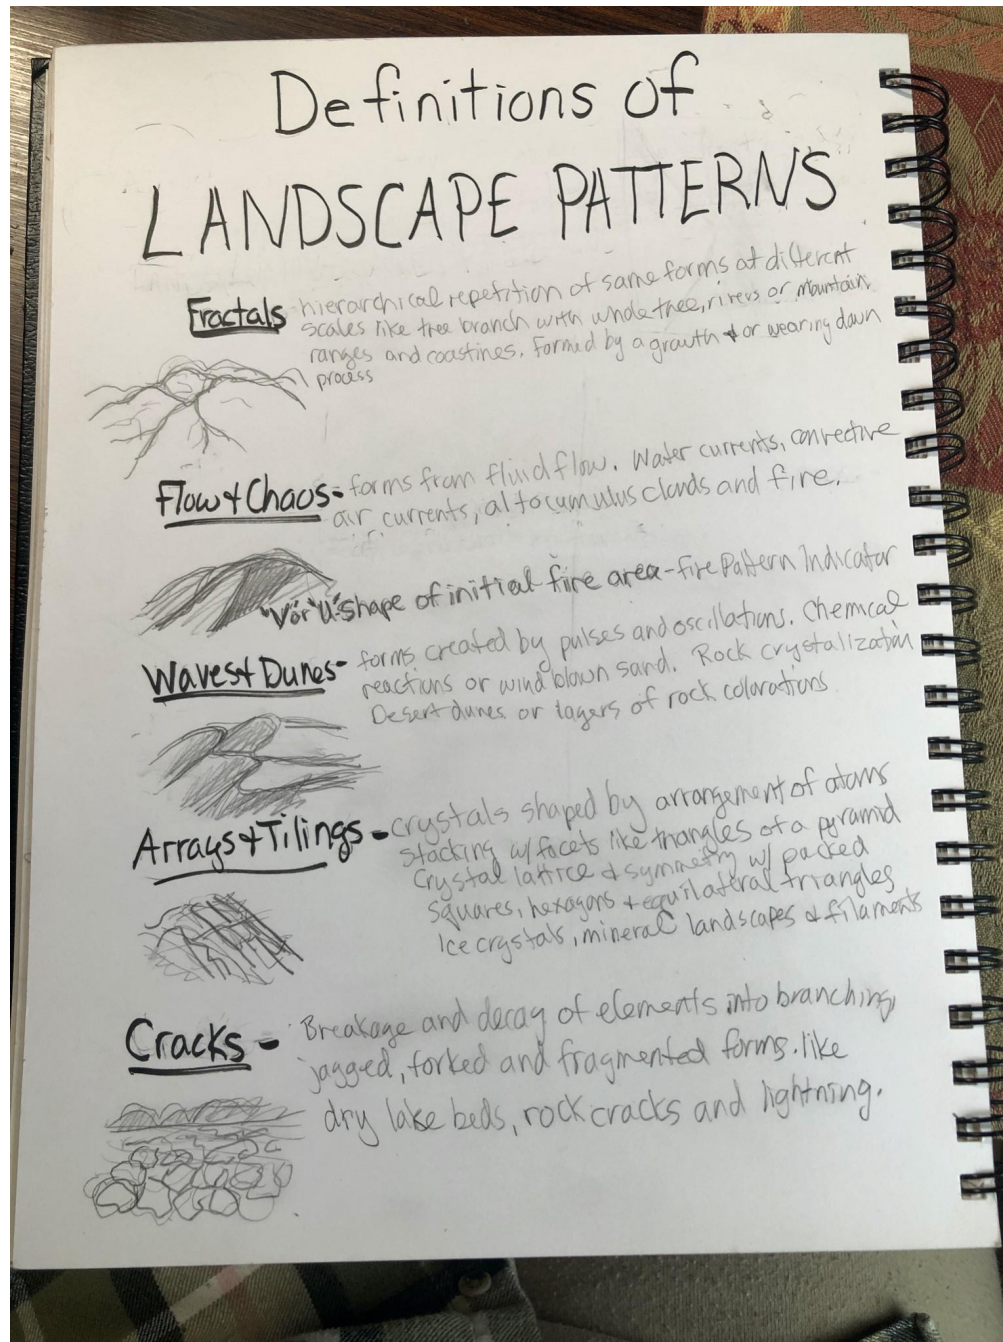 Definitions of
LANDSCAPE PATTERNS
Fractals - hierarchical repetition of same forms at different
scales like tree branch with whole thee, rivers or mountain
ranges and coastines. Formed by a growth + or wearing down
process
Flow + Chaos - forms from fluid flow. Water currents, convective
air currents, altocumulus clouds and fire.
"V" or "U" shape of initial fire area - fire Pattern Indicator
Waves + Dunes - forms created by pulses and oscillations. Chemical
reactions or wind blown sand. Rock crystalization
Desert dunes or layers of rock colorations
Arrays + Tilings - crystals shaped by arrangement of atoms
stacking w/ facets like triangles of a pyramid
Crystal lattice + symmetry w/ packed
squares, hexagons + equilateral triangles
Ice crystals, mineral landscapes + filaments
Cracks - Breakage and decay of elements into branching,
jagged, forked and fragmented forms. like
dry lake beds, rock cracks and lightning.